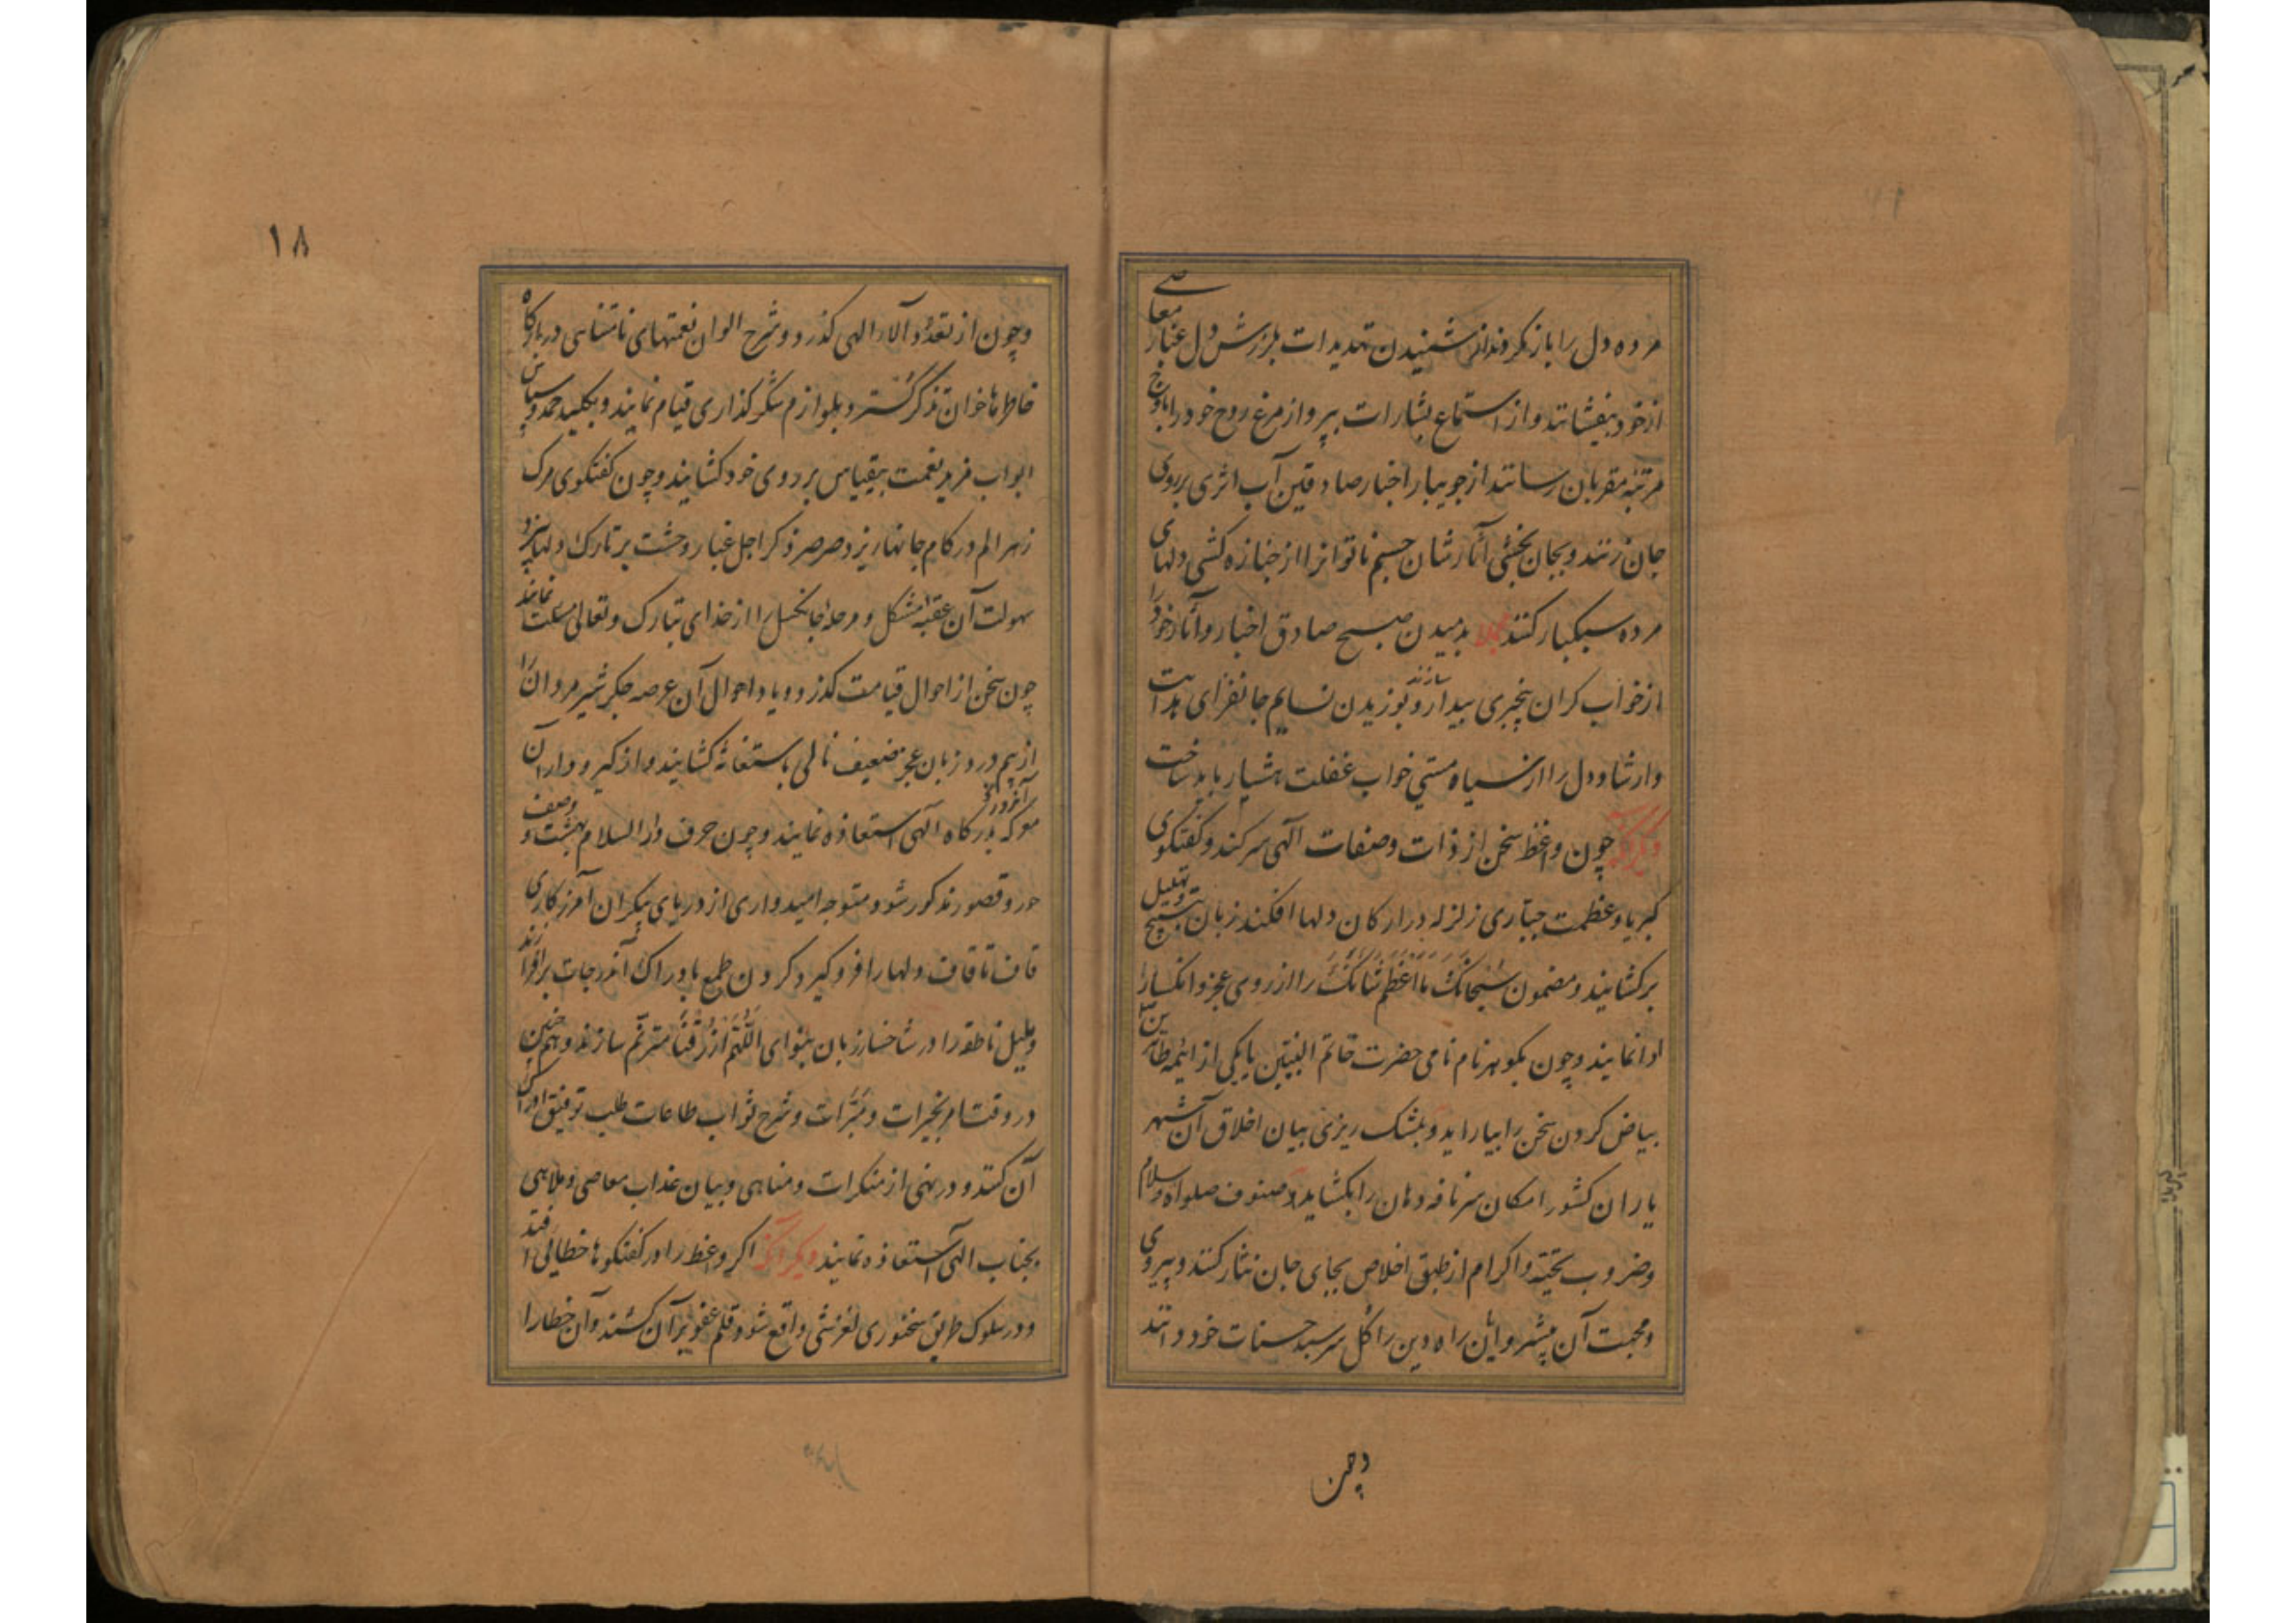 مرده دل را باز نکردند از شنیدن تهدیدات بلرزش دل غبار معاصی
از خود بیفشانند و از استماع بشارات بپرواز مرغ روح خود را باوج
مرتبه مقربان رسانند از جویبار اخبار صادقین آب اثری بر روی
جان زنند و بجان بخشی آثارشان جسم ناتوانرا از جنازه کشی دلهای
مرده سبکبار کنند مجملا بدمیدن صبح صادق اخبار و آثار خود را
از خواب کران بیخبری بیدار سازند و بوزیدن نسایم جانفزای هدایت
وارشاد دل را از سیاه مستی خواب غفلت هشیار باید ساخت
دیگر آنکه چون واعظ سخن از ذات وصفات آلهی سر کند و کفتکوی
کبریا وعظمت جباری زلزله در ارکان دلها افکند زبان بتسبیح وتهلیل
بر کشایند و مضمون سُبْحانَکَ ما اَعْظَمَ شَاْنَکَ را از روی عجز وانکسار
ادا نمایند و چون بکوهر نام نامی حضرت خاتم النبیین یا یکی از ائمه طاهرین
بیاض کردن سخن را بیاراید و بمشک ریزی بیان اخلاق آن شهر
یاران کشور امکان سر نافه دهان را بکشاید صنوف صلواه وسلام
وضروب تحیته واکرام از طبق اخلاص بجای جان نثار کنند وپیروی
ومحبت آن پیشروایان راه دین را کل سر سبد حسنات خود دانند
وچون
۱۸
وچون از تعدّد آلاء الهی کذرد وشرح الوان نعمتهای نامتناهی دربارکاه
خاطرها خوان تذکر کسترد بلوازم شکر کذاری قیام نمایند و بکلید حمد وسپاس
ابواب مزید نعمت بیقیاس بر روی خود کشایند وچون کفتکوی مرک
زهر الم در کام جانها ریزد وصرصر ذکر اجل غبار وحشت بر تارک دلها بیزد
سهولت آن عقبه مشکل و مرحله جانکسل را از خدای تبارک وتعالی مسئلت نمایند
چون سخن از احوال قیامت کذرد ویاد احوال آن عرصه جکر شیر مردان را
از هم درد زبان عجز ضعیف نالی باستغاثه کشایند واز کیر ودار آن
معرکه بدرکاه آلهی استعاذه نمایند وچون حرف دار السلام بهشت و وصف
حور وقصور مذکور شود متوجه امیدواری از دریای بیکران آمرزکاری
قاف تا قاف دلها را فرو کیرد کردن طمع بادراک آندرجات بر افرازند
وبلبل ناطقه را در شاخسار زبان بنوای اللّهُمَّ ارْزُقْنا مترنّم سازند وهمچنین
در وقت امر بخیرات ومبرّات وشرح ثواب طاعات طلب توفیق ادراک
آن کنند و در نهی از منکرات ومناهی وبیان عذاب معاصی وملاهی
بجناب الهی استعاذه نمایند دیکر آنکه اکر واعظ را در کفتکوها خطائی افتد
ودر سلوک طریق سخنوری لغزشی واقع شود قلم عفو بر آن کشند وآن خطارا